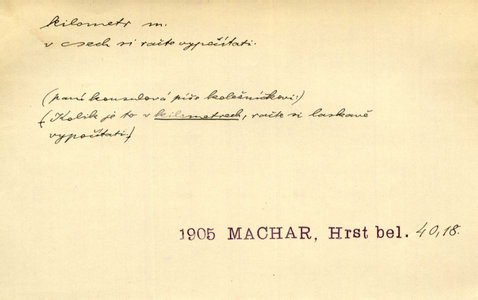 kilometr m.
v csech si račte vypočítati.
(paní konsulová píše kolečníkovi:)
(Kolik je to v kilometrech, račte si laskavě
vypočítati.)
1905 MACHAR, Hrst bel. 40,18.